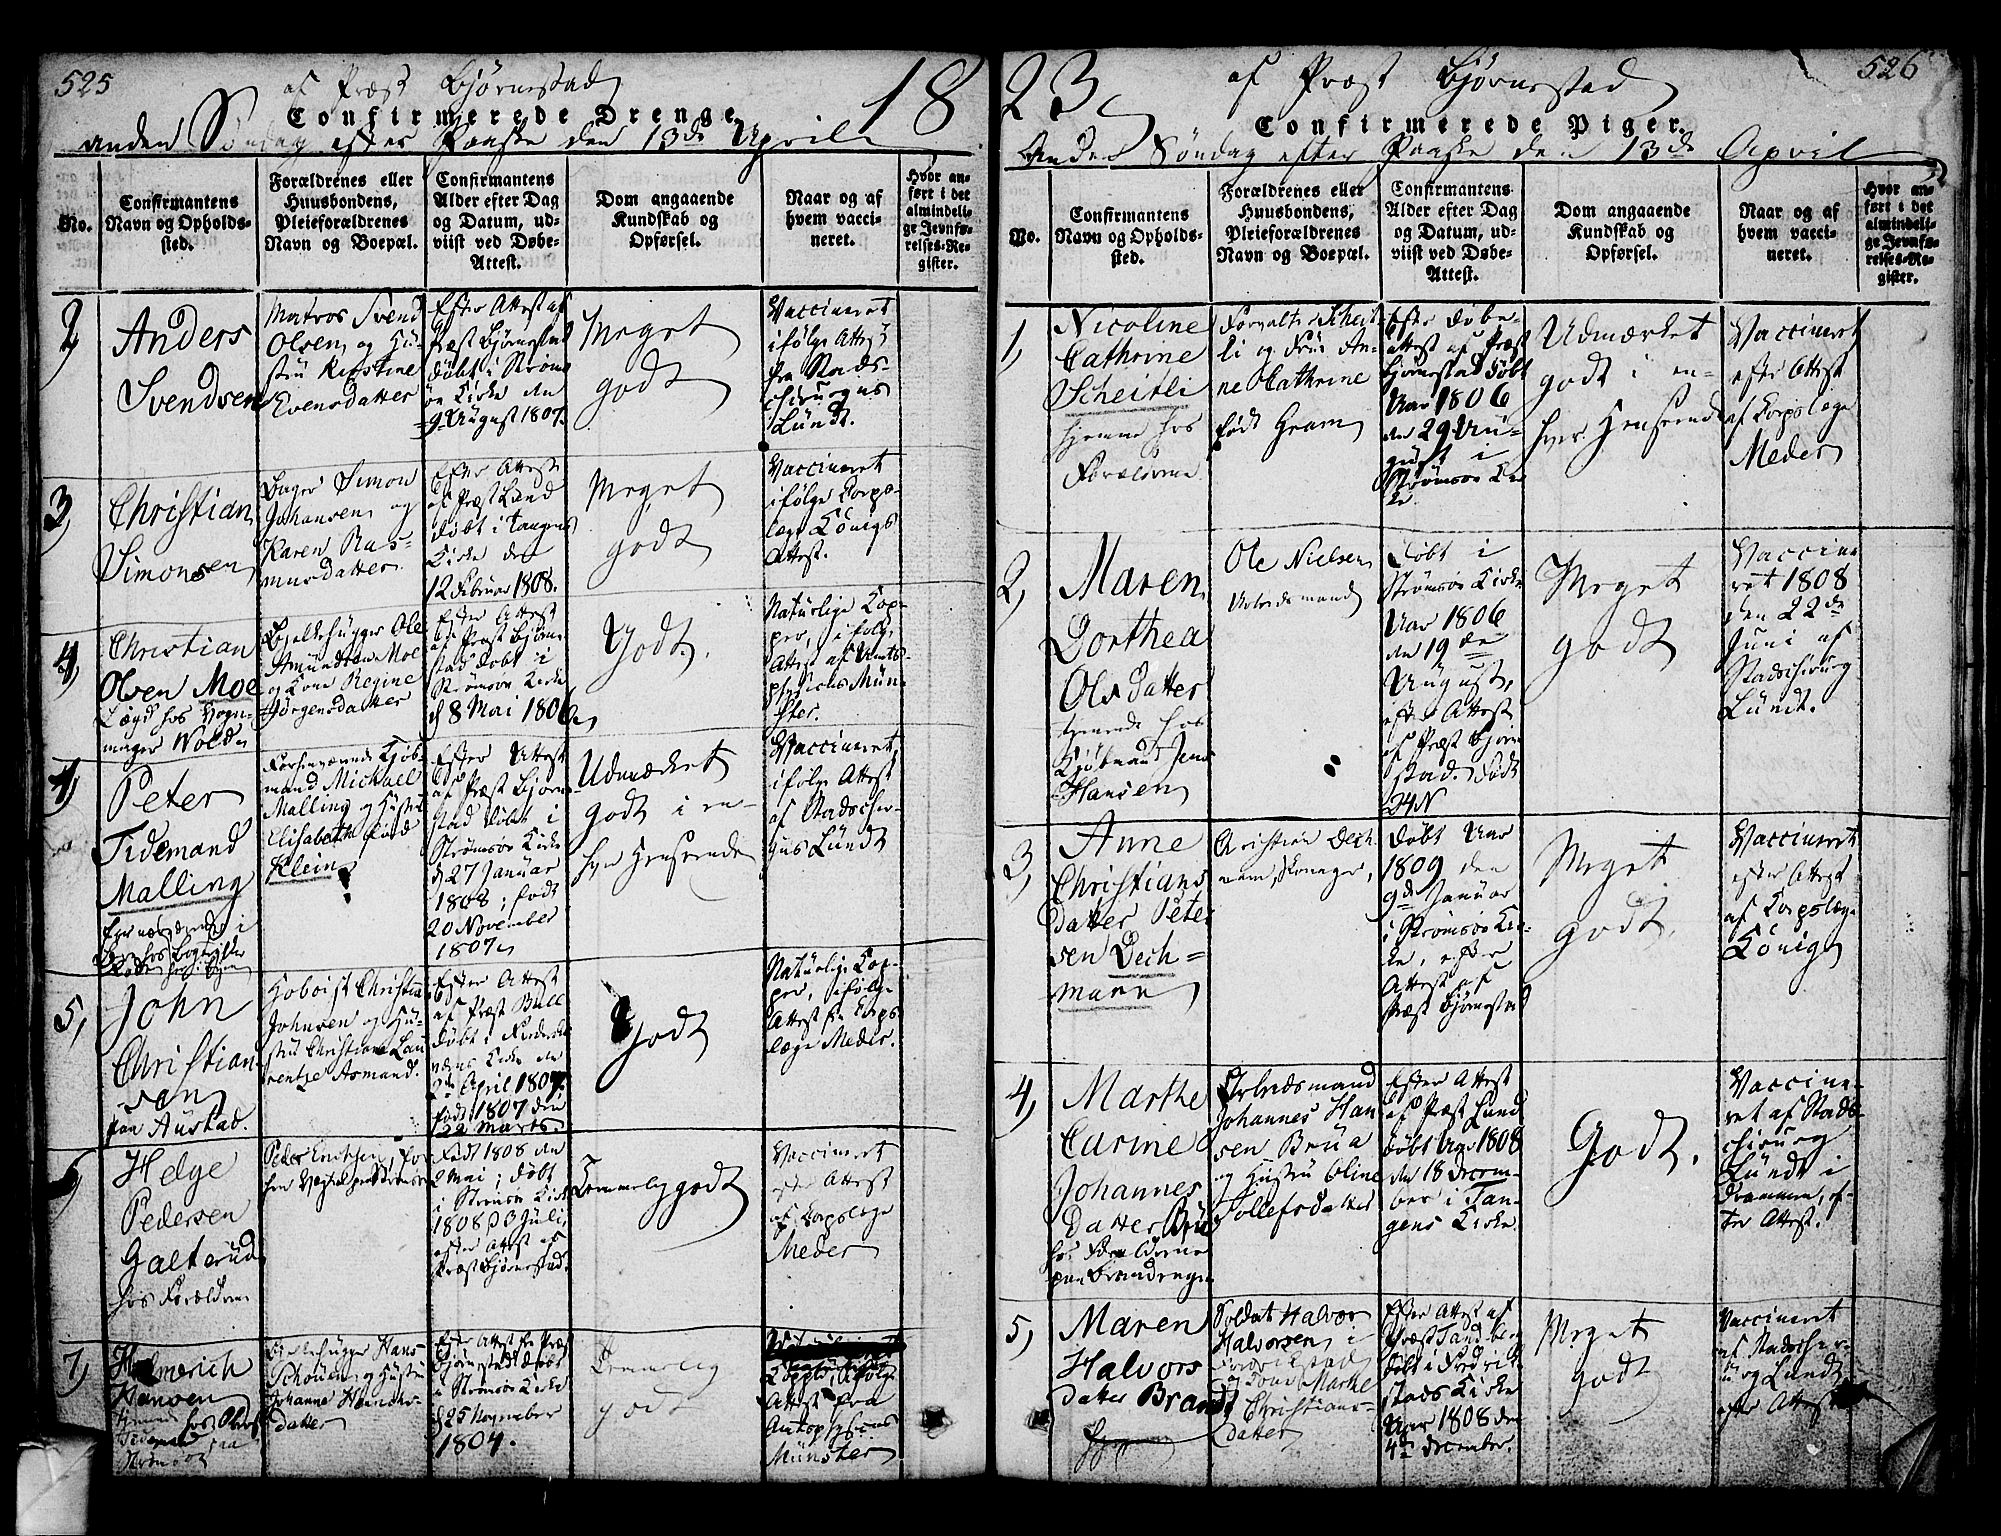 525
af Præst Bjørnestad
18
Confirmerede Drenge.
anden Søndag efter Paaske den 13de April
No.
Confirmantens
Navn og Opholds-
sted.
Forældrenes eller
Huusbondens,
Pleieforældrenes
Navn og Boepæl.
Confirmantens
Alder efter Dag
og Datum, ud-
viist ved Døbe-
Attest.
Dom angaaende
Kundskab og
Opførsel.
Naar og af
hvem vacci-
neret.
Hvor an-
ført i det
almindeli-
ge Jevnfø-
relses-Re-
gister.
2,
Anders
Svendsen
Matros Svend
Olsen og Hu-
stru Kirstine
Evensdatter
Efter Attest af
Præst Bjørnestad
døbt i Strøms-
øe Kirke den
9 August 1807.
Meget
godt
Vaccineret
ifølge Attest
fra Stads-
chirurgus
Lundt.
3,
Christian
Simonsen
Simon
Johansen og
Karen Ras-
musdatter
Efter Attest
af Præst Lund
døbt i Tangens
Kirke den
12 Februar 1808.
Meget
godt
Vaccineret
ifølge Corps-
læge Königs
Attest.
4,
Christian
Olsen Moe
Lægd hos Vogn-
mager Wold
Bielkehugger Ole
Amundsen Moe
og Kone Regine
Jørgensdatter
Efter Attest
af Præst Bjørne-
stad døbt i
Strømsøe Kirke
d 8 Mai 1806
Godt.
Naturlige Kop-
per, ifølge
Attest af Amts-
physicus Mün-
ster.
4,
Peter
Tidemand
Malling
Forhenværende Kjøb-
mand Michael
Malling og Hustru
Elisabeth født
Klein
Efter Attest
af Præst Bjørne-
stad døbt i
Strømsøe Kirke
d 27 Januar
1808; født
20 November
1807
Udmærket
godt i en-
hver Henseende
Vaccineret
ifølge Attest
af Stadschirur-
gus Lundt
5,
John
Christian-
sen
paa Austad.
Hoboist Christian
Johnsen og Hu-
stru Christiane Lau-
rentze Asmand.
Efter Attest
af Præst Bull
døbt i
Kirke den
April 1807.
født 1807 den
22 Marts.
Godt
Naturlige Kop-
per, ifølge
Attest fra Corps-
læge Meder.
6,
Helge
Pedersen
Galterud
hos Forældrene
Peder
Født 1808 den
2 Mai; døbt
i Strømsøe Kirke
1808 d 3 Juli,
efter Attest af
Præst Bjørnestad.
Temmelig godt
Vaccineret
efter Attest
af Corpslæge
Meder
7,
Helmerich
Hansen
Strømsøe
Bielkehugger Hans
og Hustru
Johanne
datter
Efter Attest fra Præst
Bjørnestad døbt
i Strømsøe Kirke
d 25 November
1804.
Temmelig
godt
Kopper, ifølge
Attest fra
Münster
23,
526
af Præst Bjørnestad
Confirmerede Piger.
Anden Søndag efter Paaske den 13de April
No.
Confirmantens
Navn og Opholds-
sted.
Forældrenes eller
Huusbondens,
Pleieforældrenes
Navn og Boepæl.
Confirmantens
Alder efter Dag
og Datum, ud-
viist ved Døbe-
Attest.
Dom angaaende
Kundskab og
Opførsel.
Naar og af
hvem vacci-
neret.
Hvor an-
ført i det
almindeli-
ge Jevnfø-
relses-Re-
gister.
1,
Nicoline
Cathrine
Scheitli
hjemme hos
Forældrene
Forvalter Scheit-
li og Frue An-
ne Cathrine
født Gram
Efter Døbe-
attest af Præst
Bjørnestad født
Aar 1806
den 29 Au-
gust i
Strømsøe Kir-
ke
Udmærket
godt i en-
hver Henseende
Vaccineret
efter Attest
af Corpslæge
Meder
2,
Maren
Dorthea
Olsdatter
tjenende hos
Kjøbmand Jens
Hansen
Ole Nielsen
Arbeidsmand
Døbt i
Strømsøe Kirke
Aar 1806
den 19de
August,
efter Attest
af Præst Bjørne-
stad. Født
Meget
godt
Vaccine-
ret 1808
den 22de
Juni af
Stadschirurg
Lundt.
3,
Anne
Christians
datter Peter
sen Dech=
mann
Christian Dech-
mann,
Døbt Aar
1809 den
9de Januar
i Strømsøe Kir-
ke, efter
Attest af
Præst Bjørnestad
Meget
godt.
Vaccineret
efter Attest
af Corpslæge
König
4,
Marthe
Carine
Johannes
datter Brua
hos Forældrene
paa Brandengen
Arbeidsmand
Johannes Han
sen Brua
og Hustru Oline
Tollefsdatter
Efter Attest
af Præst Lund
døbt Aar 1808
den 18 Decem-
ber i Tan-
gens Kirke
Godt.
Vaccine-
ret af Stads-
chirurg
Lundt i
Drammen, ef-
ter Attest.
5,
Maren
Halvors
datter Brandt
Soldat Halvor
Halvorsen i
Fridrikstad
og Kone Marthe
Christians-
datter
Efter Attest af
Præst Sandberg
døbt i Fredrik-
stads Kirke
Aar 1808 den
4de December.
Meget
godt
Vaccineret
af Stadschir-
urg Lundt
efter Attest